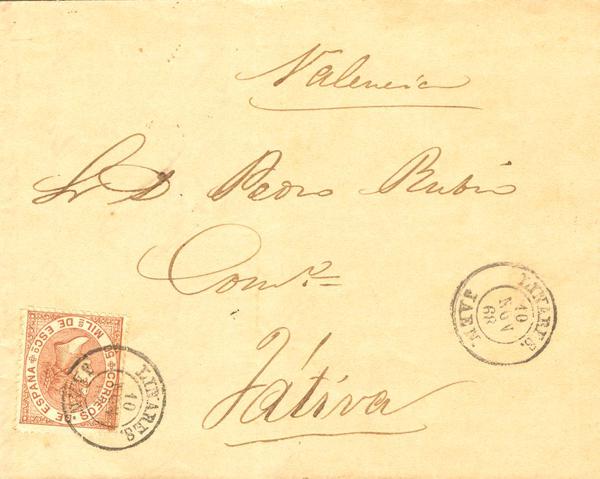 Valencia
Sr. D. Pedro Rubio
Com.º
Játiva
LINARES.
10
NOV
68
JAEN.
CORREOS DE ESPAÑA
50 MILS DE ESCO
LINARES.
10